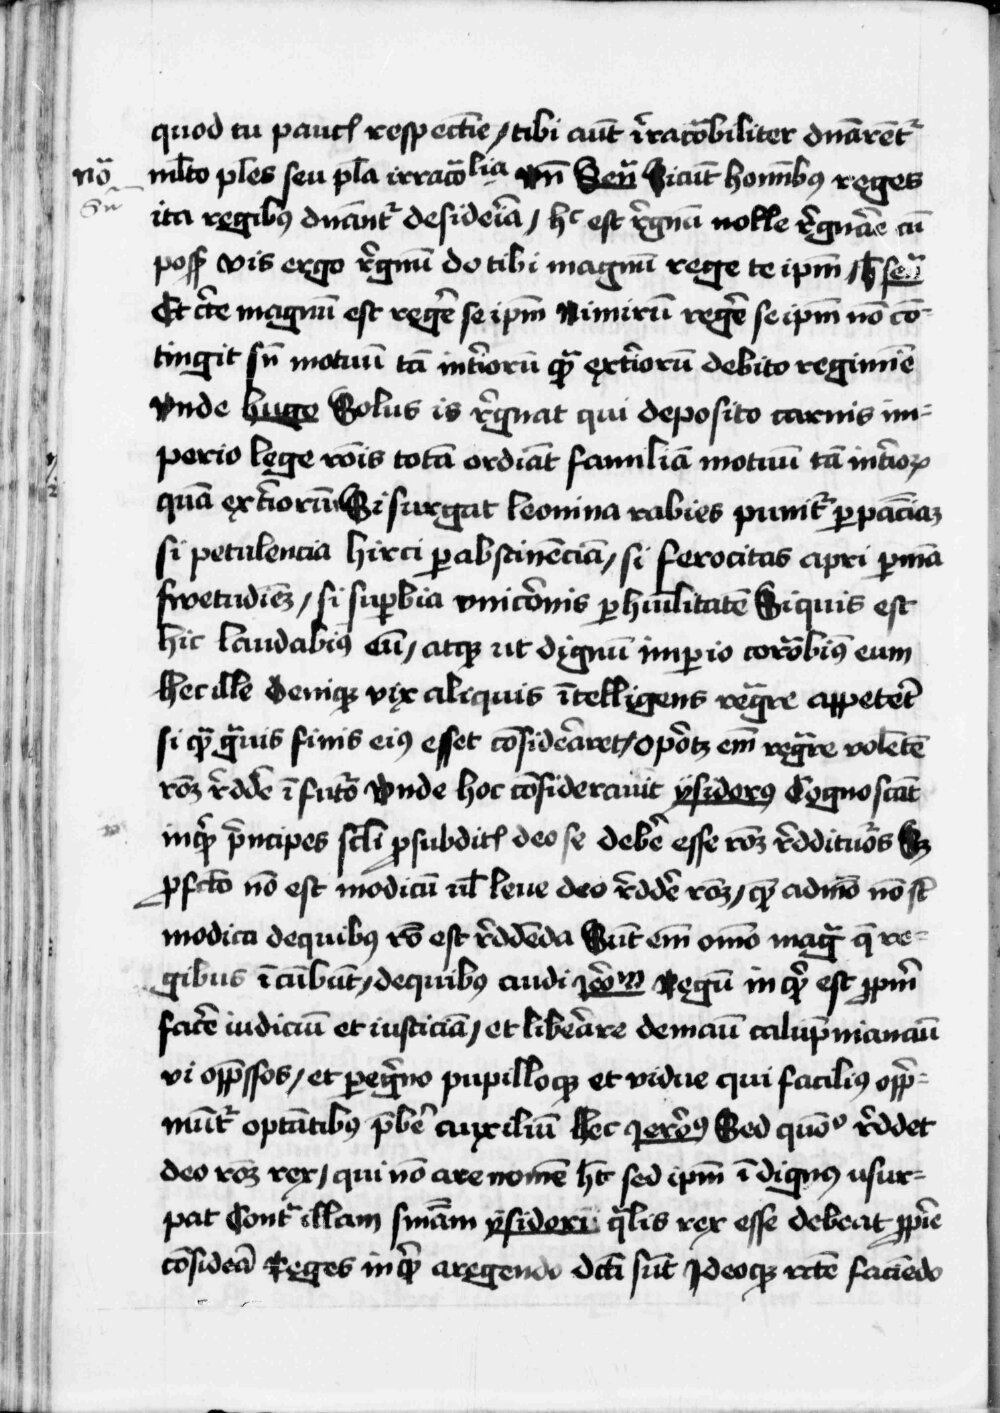 quod tu pauc̄ꝭ respectiue / tibi aut̄ irrac̄o̅biliter dn̄arent᷑
no᷑ ml̄to ples seu pl̄a irrac̄olia Vn̄ Sen̄ Sicut hom̄ībꝰ reges
ita regibꝰ dn̄ant᷑ desideria / hͨ est r̄gnū nolle r̄gnare cū
possꝭ vis ergo r̄gnū do tibi magnū rege te ipm̄ / h̄ sen̄
Et c̄te magnū est reḡe se ipm̄ Nimirū reḡe se ipm̄ nō cō-
tingit sn̄ motuū tā int̄iorū qᷓ ext̄iorū debito regimīe
Vnde huge Solus is r̄gnat qui deposito carnis im-
perio lege rōis totā ordīat familiā motuū tā int̄ioꝝ
quā ext̄iorū Si surgat leonina rabies punit᷑ ꝑ pac̄iaꝫ
si petulencia hirci ꝑ abstinēciā / si ferocitas apri ꝑ mā
swetudīeꝫ / si suꝑbia vnicōnis ꝑ hūilitatē Siquis est
hic laudabiꝰ cū / atqꝫ ut dignū imꝑio corōbiꝰ eum
Hec ille Deniqꝫ vix aliquis ītelligens regᷓre appetet᷑
si qᷓ gᷓuis finis eiꝰ esset cōsid̄earet / oportꝫ em̄ regᷓre volētē
rōꝫ r̄dde̅ ī futō Vnde hoc cōsiderauit ysidorꝰ Cognoscāt
inqͣ p̄ncipes scl̄i ꝓ subditꝭ deo se deb̄e esse rōꝫ r̄ddituros Sꝫ
ꝓfc̄to nō est modicū ul̄ leue deo r̄dd̄e rōꝫ / qꝫ admō nō st̄
modica de quibꝰ rō est r̄ddēda Sūt em̄ omō magᷓ q̄ re-
gibus īcūbūt / de quibꝰ audi Jeōm Regū inqͣ est ꝓpm̄
fac̄e iudiciū et iusticiā / et lib̄eare de manū calūpniancīū
vi opp̄ssos / et peg̅no pupilloqꝫ et vidue qui faciliꝰ opp̄-
mūt᷑ optātibꝰ p̄be̅ auxiliū Hec Jeroꝰ Sed quōͦ r̄ddet
deo rōꝫ rex / qui nō a re nomē hꝫ sed ipm̄ īdignꝰ usur-
pat Cont᷑ illam sn̄iam ysideri qᷓlis rex esse debeat ꝓpīe
cōsideā Reges inqͣ a regendo dc̄ti sūt Jdeoqꝫ rc̄tē faciēdo